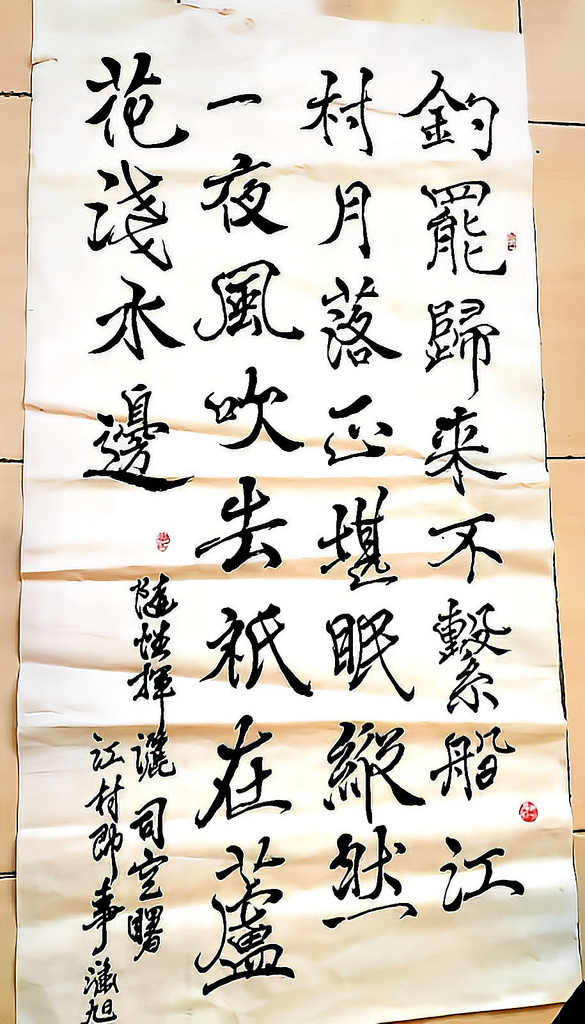 釣罷歸来不繫船江
村月落正堪眠縱然
一夜風吹去祇在蘆
花淺水邊
隨性揮灑司空曙
江村即事
旭